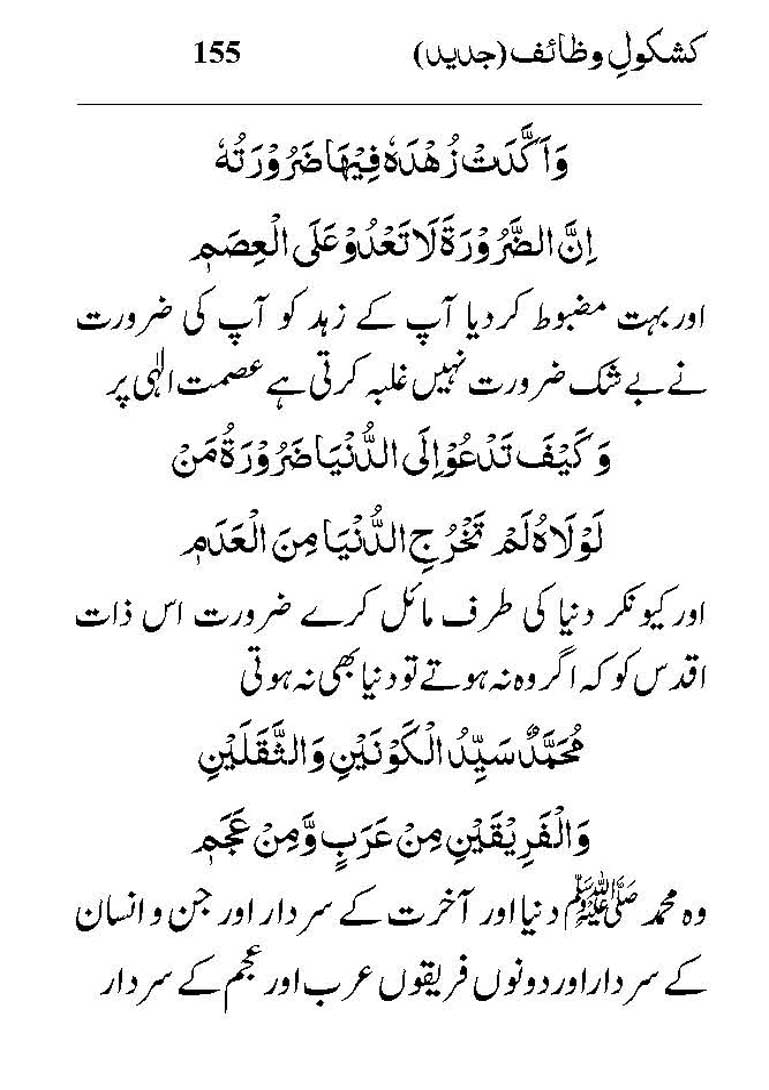 کشکولِ وظائف (جدید) 155
وَاَكَّدَتْ زُهْدَهٗ فِيْهَا ضَرُوْرَتُهٗ
اِنَّ الضَّرُوْرَةَ لَا تَعْدُوْ عَلَى الْعِصَمٖ
اور بہت مضبوط کردیا آپ کے زہد کو آپ کی ضرورت
نے بے شک ضرورت نہیں غلبہ کرتی ہے عصمت الٰہی پر
وَكَيْفَ تَدْعُوْ اِلَى الدُّنْيَا ضَرُوْرَةُ مَنْ
لَوْلَاهُ لَمْ تَخْرُجِ الدُّنْيَا مِنَ الْعَدَمٖ
اور کیونکر دنیا کی طرف مائل کرے ضرورت اس ذات
اقدس کو کہ اگر وہ نہ ہوتے تو دنیا بھی نہ ہوتی
مُحَمَّدٌ سَيِّدُ الْكَوْنَيْنِ وَالثَّقَلَيْنِ
وَالْفَرِيْقَيْنِ مِنْ عَرَبٍ وَّمِنْ عَجَمٖ
وہ محمد ﷺ دنیا اور آخرت کے سردار اور جن و انسان
کے سردار اور دونوں فریقوں عرب اور عجم کے سردار